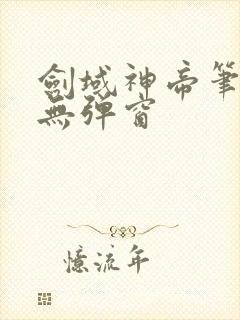 劍域神帝筆
無彈窗
憶流年